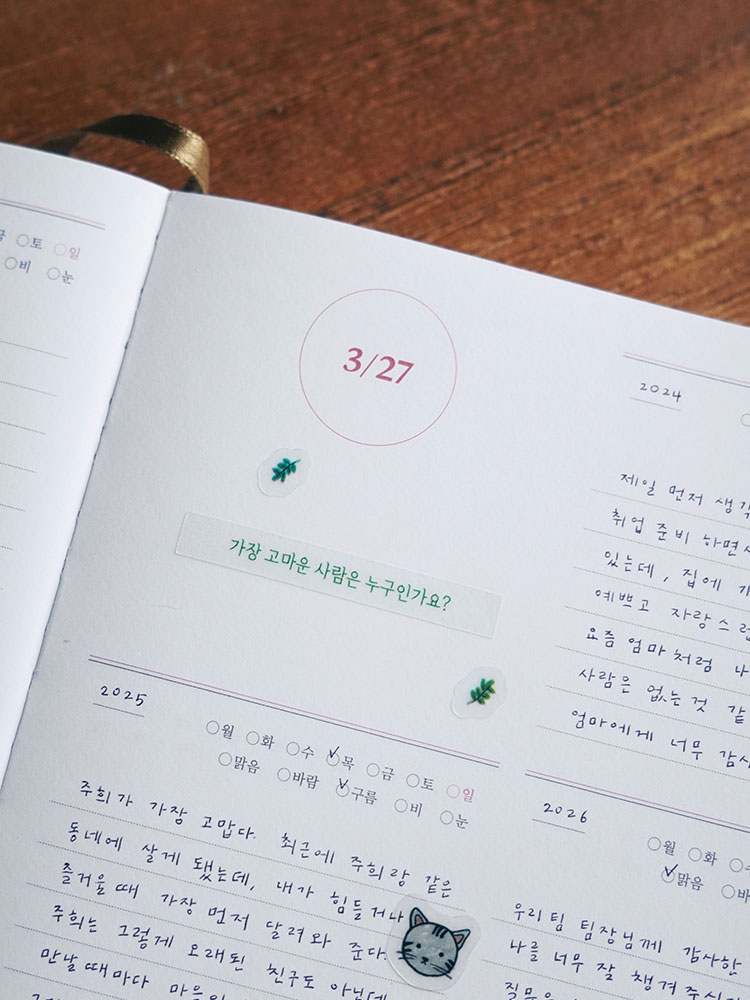 토 일
비 눈
3/27
가장 고마운 사람은 누구인가요?
2024
제일 먼저
취업 준비
있는데, 집에
예쁘고
요즘 엄마처럼
사람은 없는 것
엄마에게 너무
2025
월 화 수 목 금 토 일
맑음 바람 구름 비 눈
주희가 가장 고맙다. 최근에 주희랑 같은
동네에 살게 됐는데, 내가 힘들거나
즐거울 때 가장 먼저 달려와 준다.
주희는 그렇게 오래된 친구도 아닌데
만날 때마다
2026
월 화
맑음
우리 팀 팀장님께 감사한
나를 너무 잘